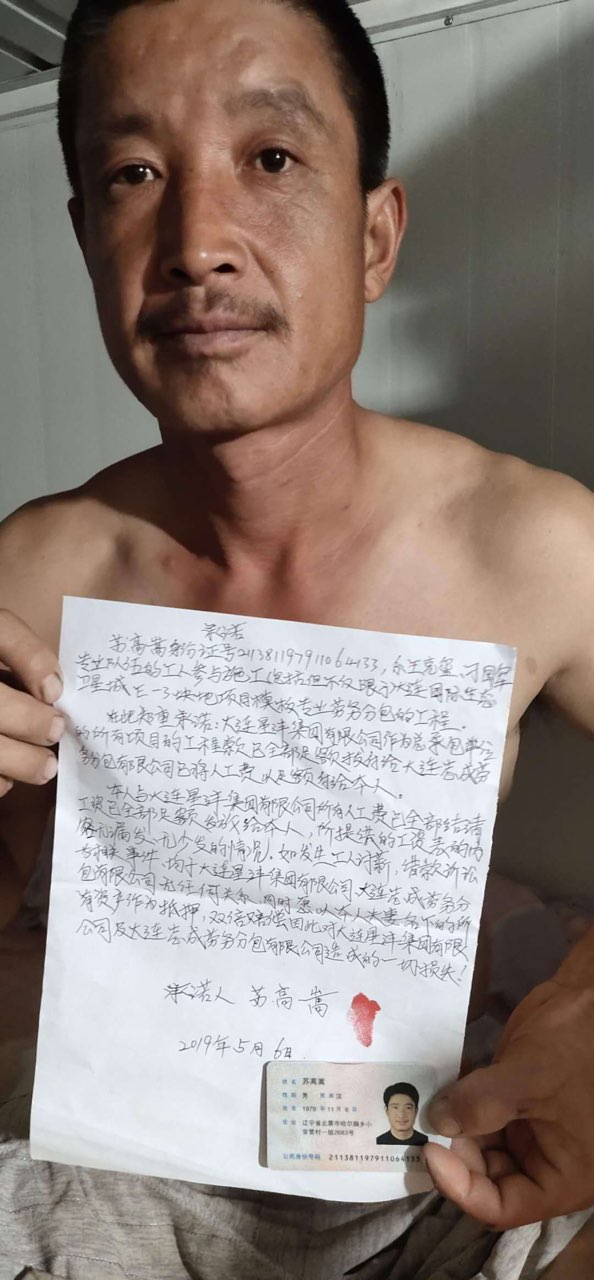 承诺书
苏高嵩身份证号211381197911064133,系王克玺、刁国军
专业队伍的工人参与施工(包括但不仅限于)大连国际生态
卫星城E-3块地项目模板专业劳务分包的工程。
在此郑重承诺:大连星洋集团有限公司作为总承包单位
的所有项目的工程款已全部足额拨付给大连志成劳
务分包有限公司已将人工费足额付给本人。
本人与大连星洋集团有限公司所有人工费已全部结清
工资已全部足额发放给本人,所提供的工资表的内
容无漏发、无少发的情况。如发生工人讨薪,借款诉讼
等相关事件,均于大连星洋集团有限公司、大连志成劳务分
包有限公司无任何关系,同时愿以本人夫妻名下的所
有资产作为抵押,双倍赔偿因此对大连星洋集团有限
公司及大连志成劳务分包有限公司造成的一切损失!
承诺人 苏高嵩
2019年5月6日
姓名 苏高嵩
性别 男 民族 汉
出生 1979年11月6日
住址 辽宁省北票市哈尔脑乡小
营村一组2683号
公民身份号码 211381197911064133